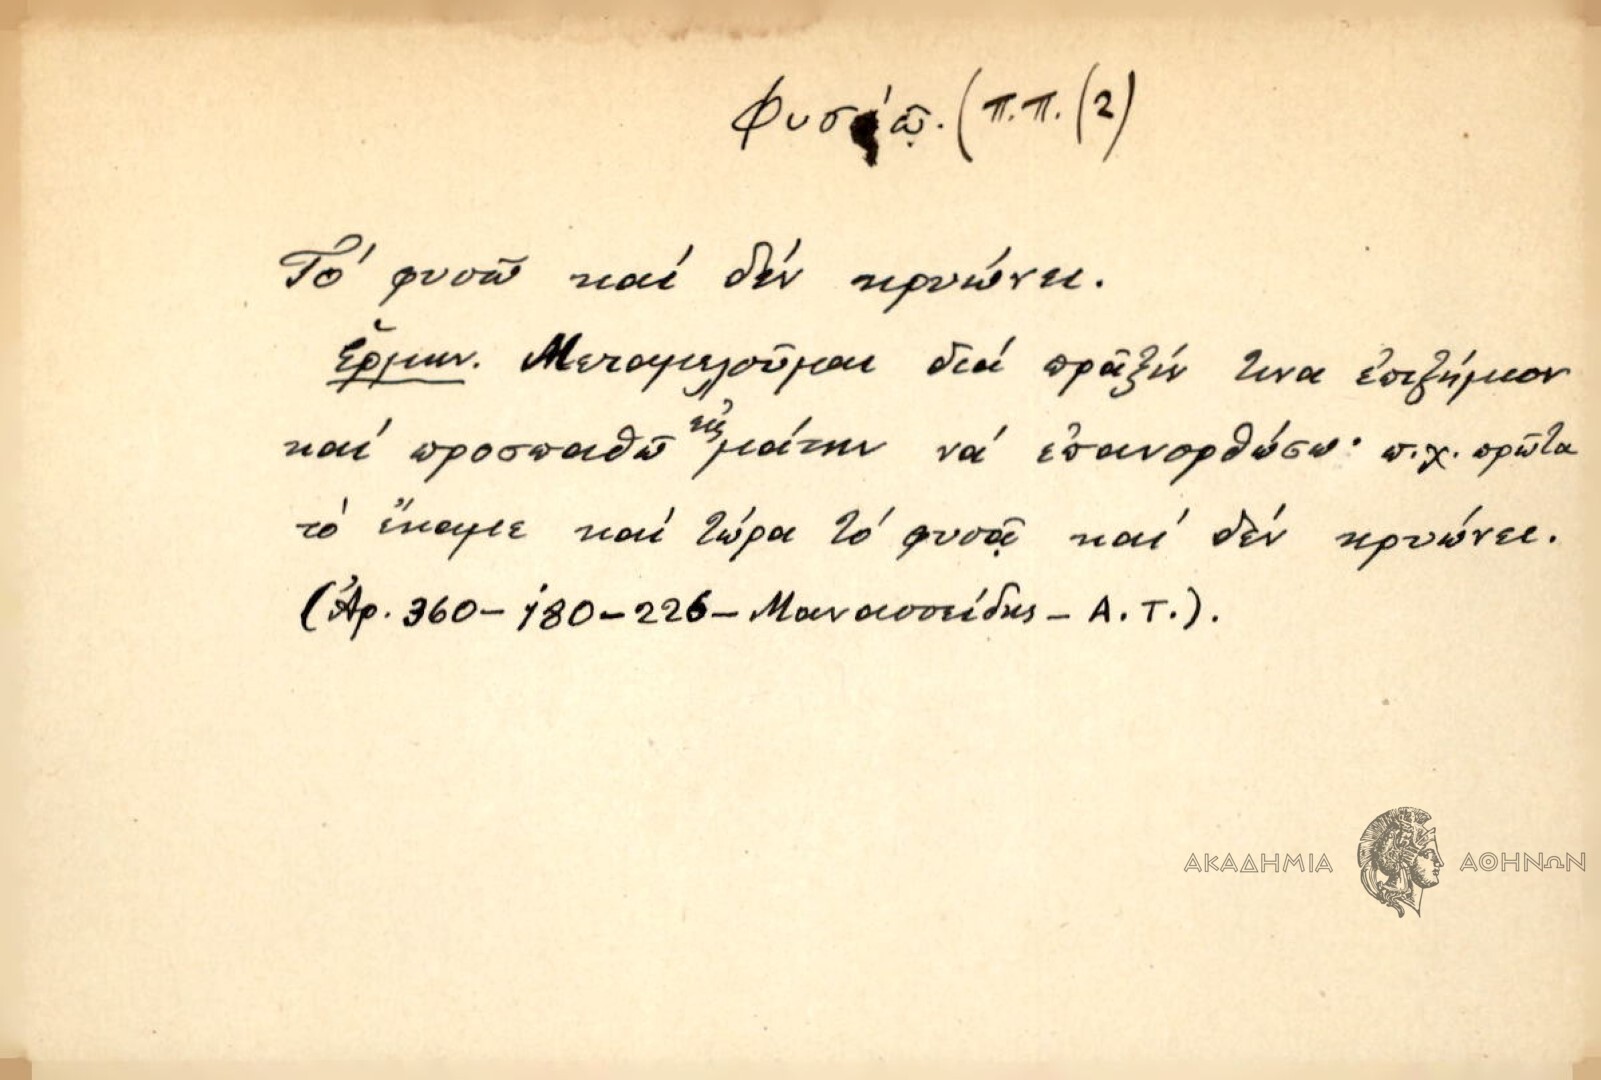 Φυσάω. (Π.Π. (2)
Τό φυσῶ καί δέν κρυώνει.
Ἑρμην. Μεταμελοῦμαι διά πρᾶξίν τινα ἐπιζήμιον
καί προσπαθῶ εἰς μάτην νά ἐπανορθώσω· π.χ. πρῶτα
τό ἔκαμε καί τώρα τό φυσᾷ καί δέν κρυώνει.
(Ἀρ. 360 – 180 – 226 – Μανασσείδης – Α.Τ.).
ΑΚΑΔΗΜΙΑ ΑΘΗΝΩΝ